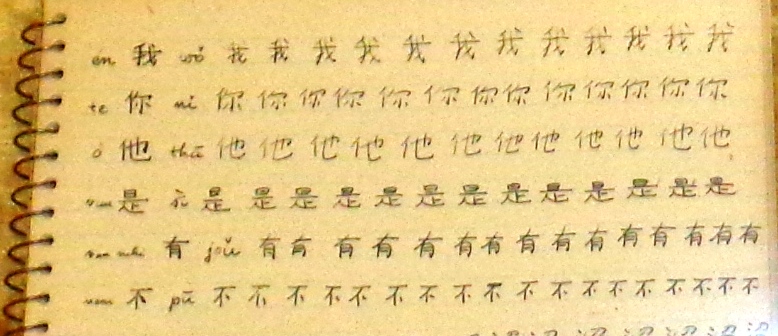 én 我 wǒ 我 我 我 我 我 我 我 我 我 我 我 我
te 你 ni 你 你 你 你 你 你 你 你 你 你 你 你 你
ő 他 thā 他 他 他 他 他 他 他 他 他 他 他 他
是 是 是 是 是 是 是 是 是 是 是 是 是 是
有 joǔ 有 有 有 有 有 有 有 有 有 有 有 有 有 有 有
nem 不 pū 不 不 不 不 不 不 不 不 不 不 不 不 不 不 不 不 不 不